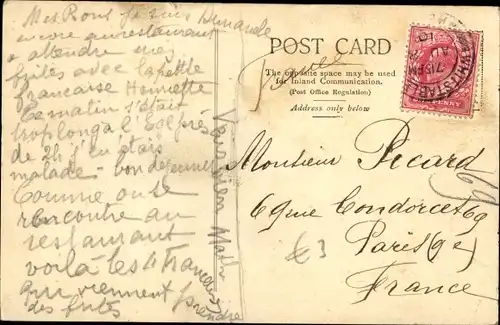 Mes Bons je suis Dimanche
encore au restaurant
a attendre mes
frites avec la petite
Francaise Henriette
Ce matin s'était
trop long a l'Ecl près
de 2h j'en étais
malade - bon dejeuner
Comme on se
rencontre au
restaurant
voilà les 4 Francaises
qui viennent prendre
des frites
POST CARD
The opposite space may be used
for Inland Communication.
(Post Office Regulation)
Address only below
WHITSTABLE
7.15 PM
AU
PENNY
Monsieur Picard
69 rue Condorcet 69
Paris (9e)
France
€3